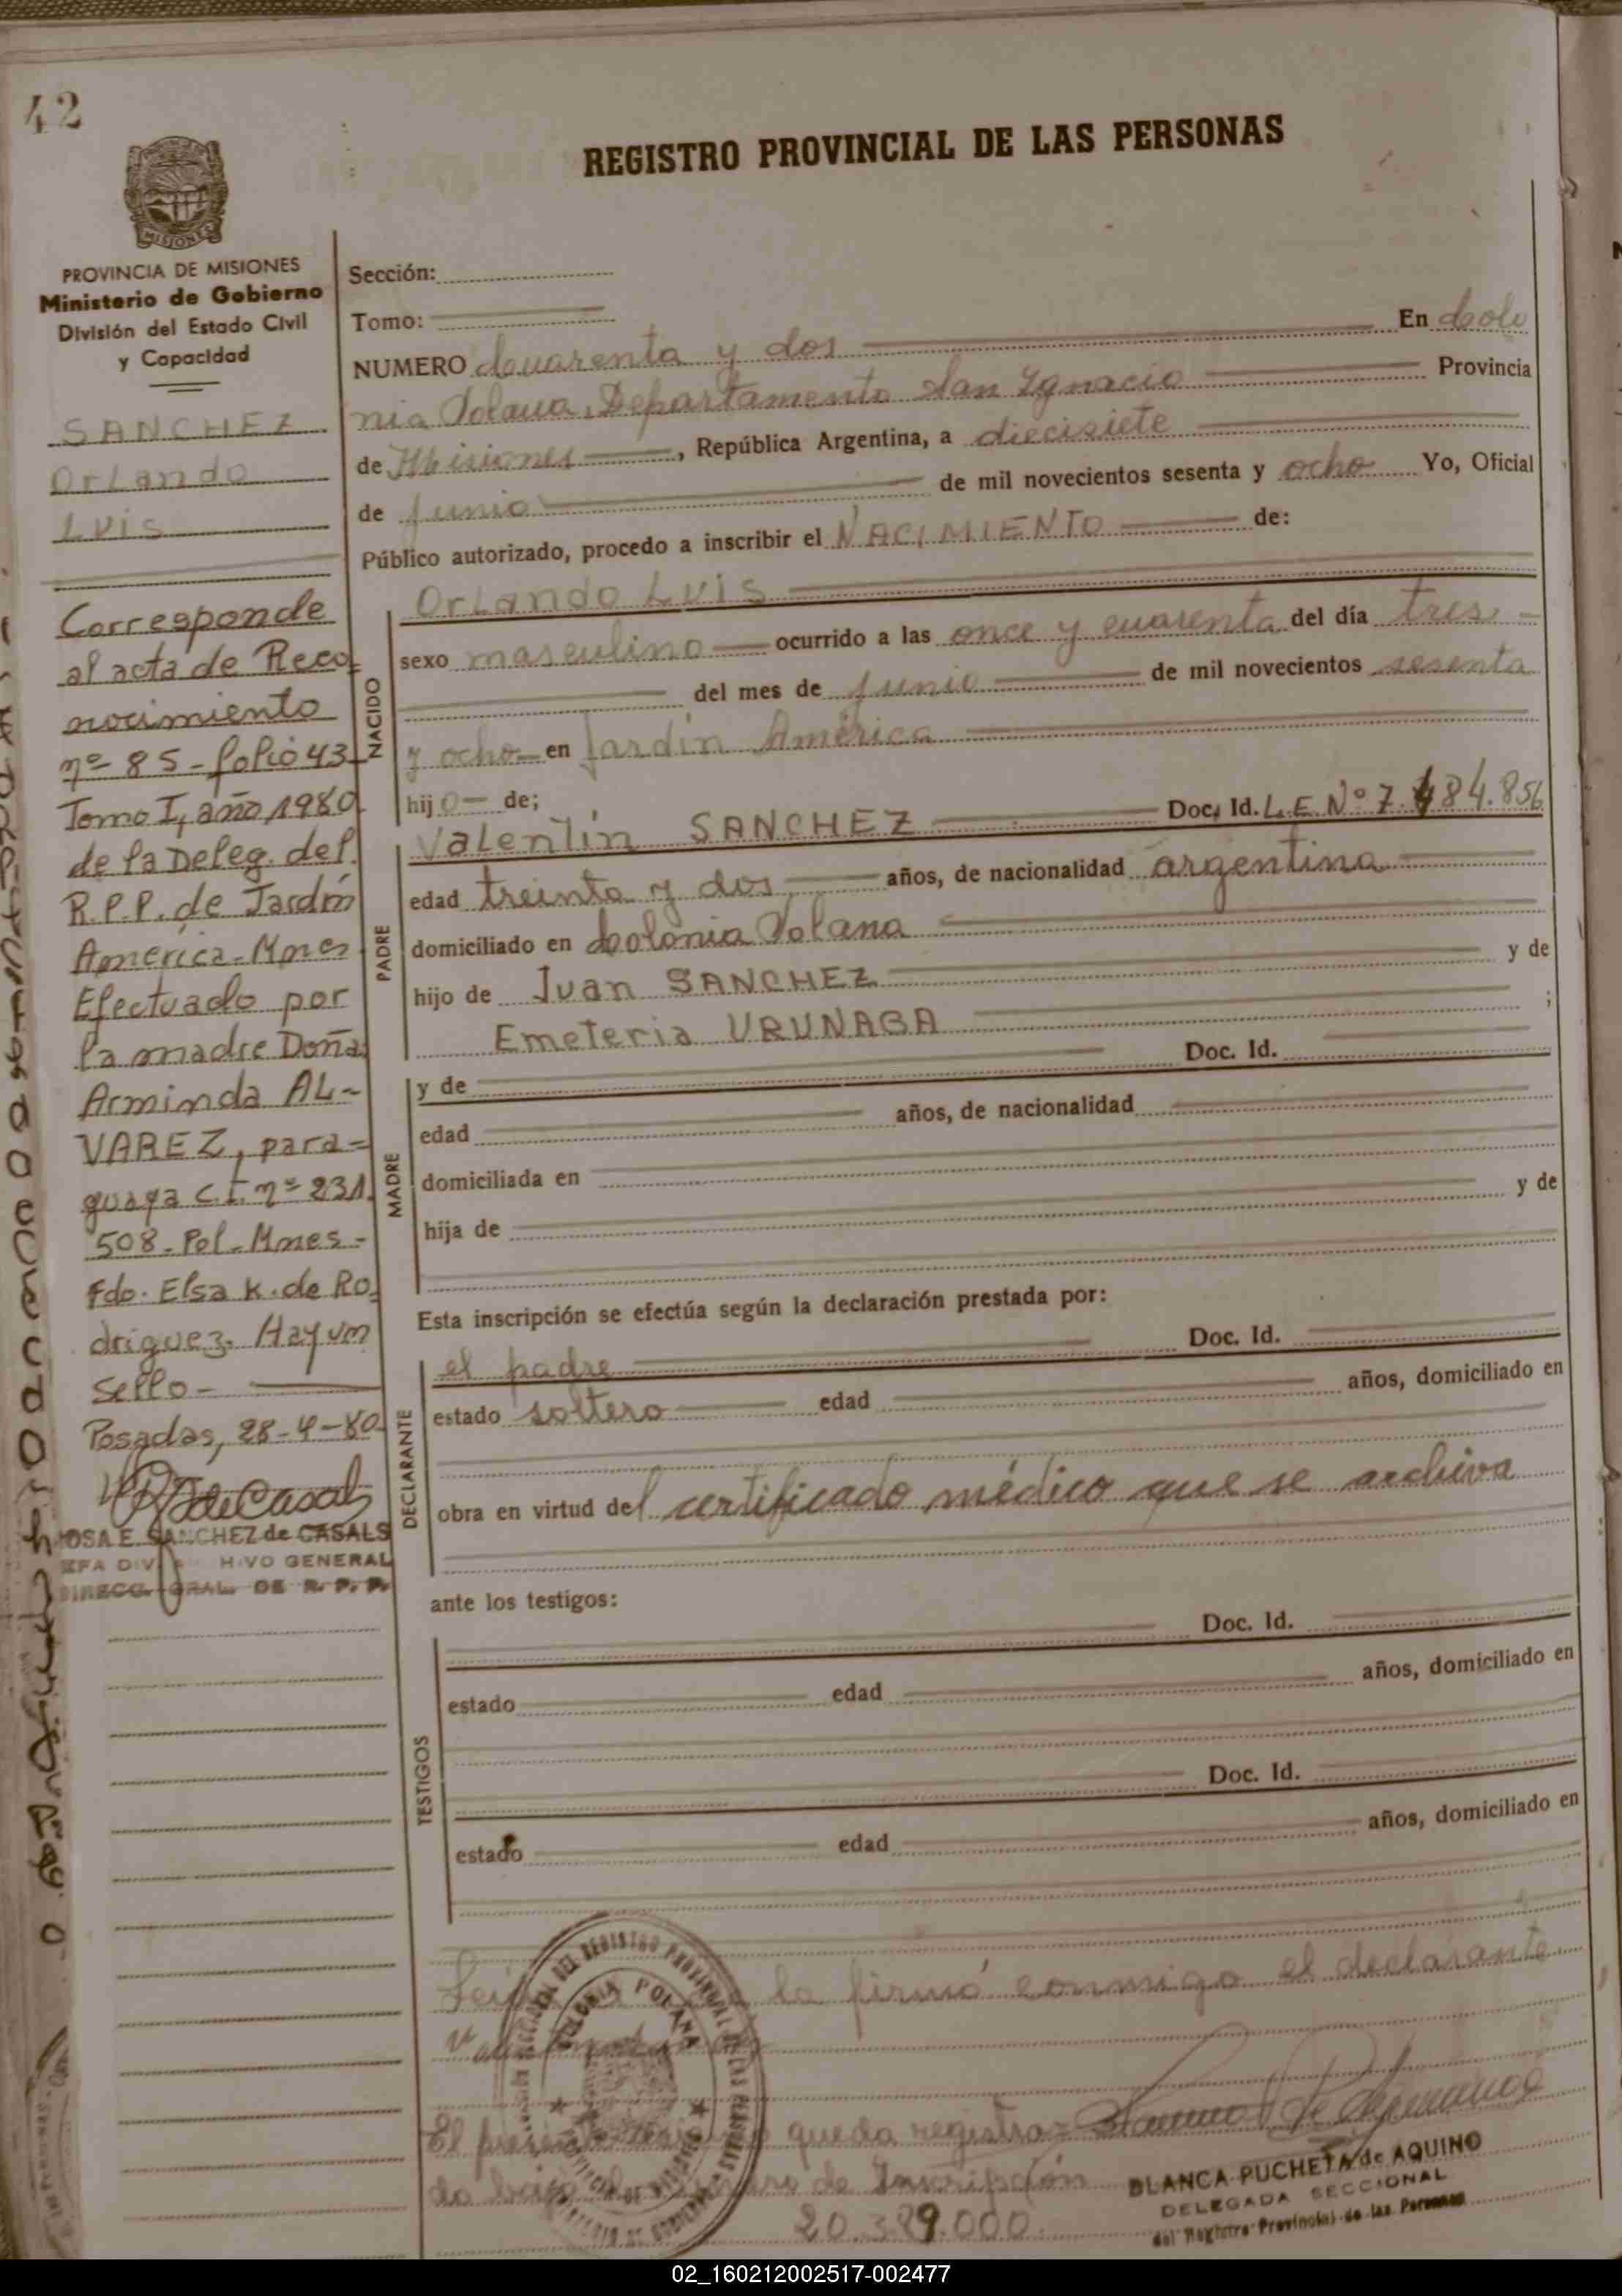 42
REGISTRO PROVINCIAL DE LAS PERSONAS
MISIONES
PROVINCIA DE MISIONES
Ministerio de Gobierno
División del Estado Civil
y Capacidad
SANCHEZ
Orlando
Luis
Corresponde
al acta de Reco
nocimiento
nº 85 - folio 43
Tomo I, año 1980
de la Deleg. del
R.P.P. de Jardín
América - Mnes
Efectuado por
la madre Doña
Arminda AL-
VAREZ, para=
guaya C.I. nº 231.
508 - Pol - Mnes -
Fdo. Elsa K. de Ro
driguez. Hay un
Sello -
Posadas, 28-4-80
ROSA E. SANCHEZ de CASALS
Sección:
Tomo:
NUMERO cuarenta y dos En Colo
nia Polana, Departamento San Ignacio Provincia
de Misiones, República Argentina, a diecisiete
de junio de mil novecientos sesenta y ocho Yo, Oficial
Público autorizado, procedo a inscribir el NACIMIENTO de:
NACIDO
Orlando Luis
sexo masculino ocurrido a las once y cuarenta del día tres
del mes de junio de mil novecientos sesenta
y ocho en Jardín América
hijo de;
PADRE
Valentín SANCHEZ Doc. Id. L.E. Nº 7.484.856
edad treinta y dos años, de nacionalidad argentina
domiciliado en Colonia Polana
hijo de Juan SANCHEZ y de
Emeteria URUNAGA ;
MADRE
y de Doc. Id.
edad años, de nacionalidad
domiciliada en
hija de y de
Esta inscripción se efectúa según la declaración prestada por:
DECLARANTE
el padre Doc. Id.
estado soltero edad años, domiciliado en
obra en virtud del certificado médico que se archiva
ante los testigos:
TESTIGOS
Doc. Id.
estado edad años, domiciliado en
Doc. Id.
estado edad años, domiciliado en
la firmó conmigo el declarante
COLONIA POLANA
El presente queda registra=
do bajo de Inscripción
20.389.000
BLANCA PUCHETA de AQUINO
DELEGADA SECCIONAL
del Registro Provincial de las Personas
02_160212002517-002477